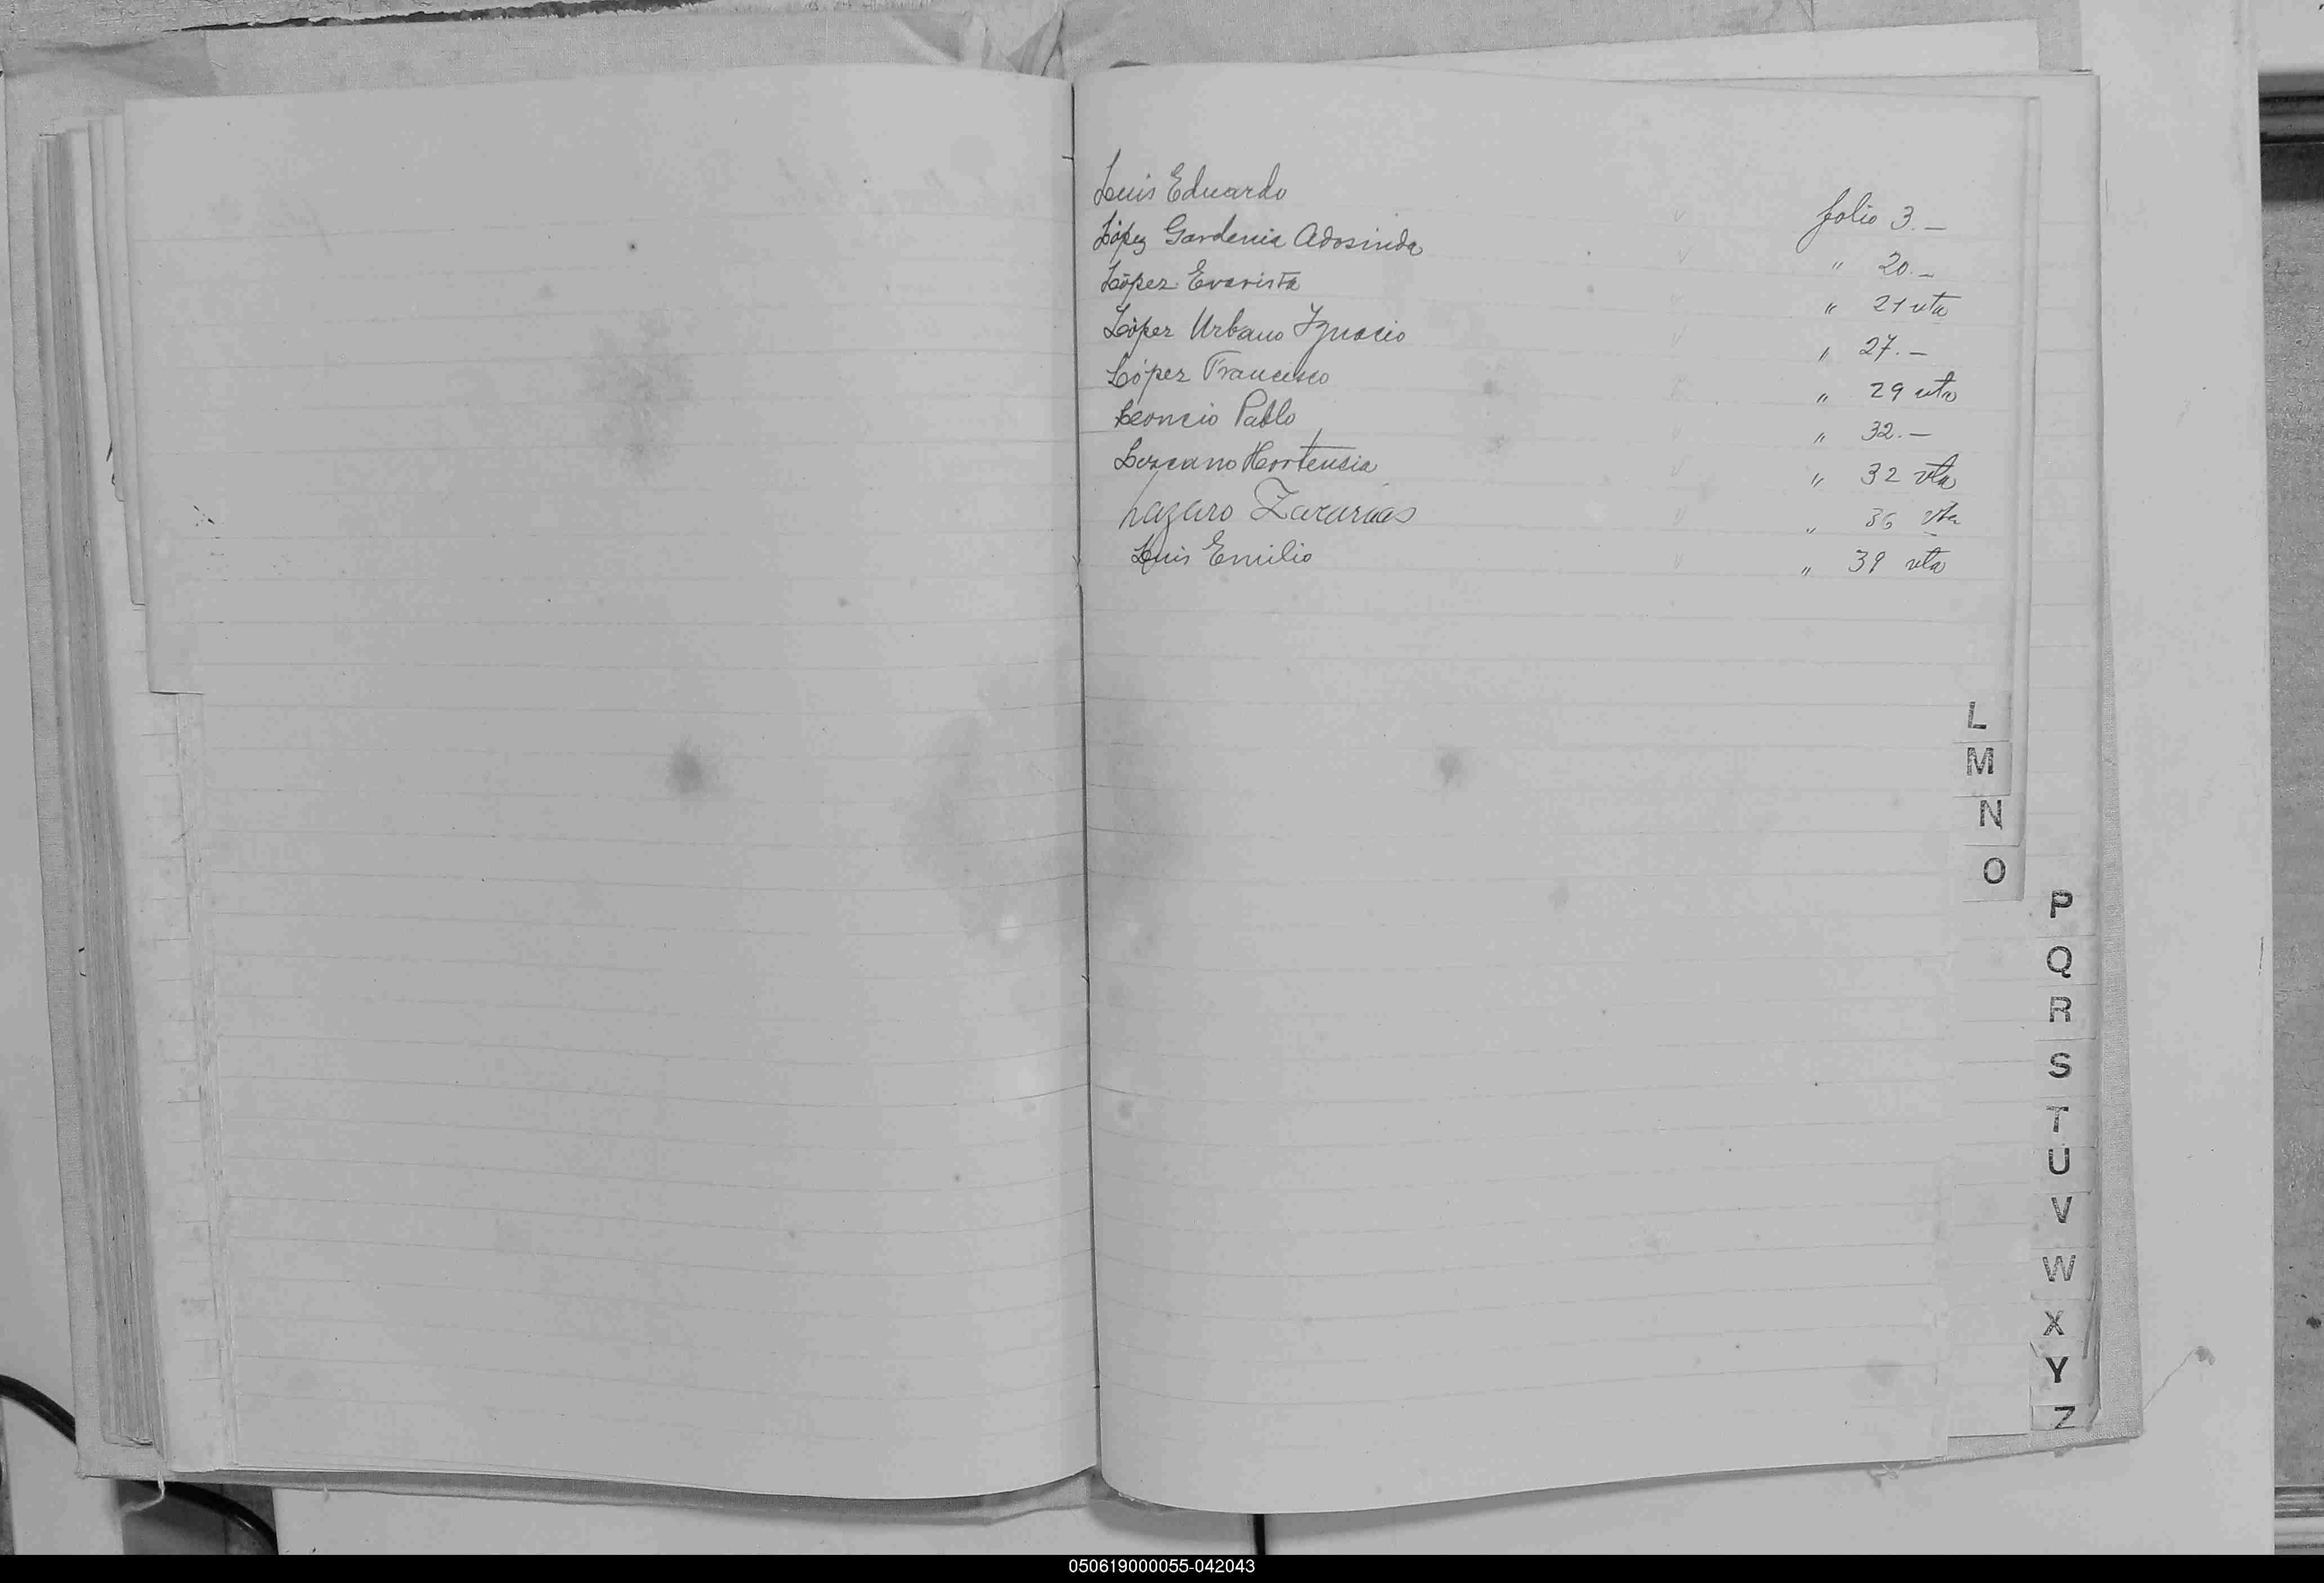 Luis Eduardo folio 3.—
López Gardenia Adosinda " 20.—
López Evarista " 21 vta
López Urbano Ygnacio " 27.—
López Francisco " 29 vta
Leoncio Pablo " 32.—
Lezcano Hortensia " 32 vta
Lazaro Zacarias " 36 vta
Luis Emilio " 39 vta
L
M
N
O
P
Q
R
S
T
U
V
W
X
Y
Z
050619000055-042043